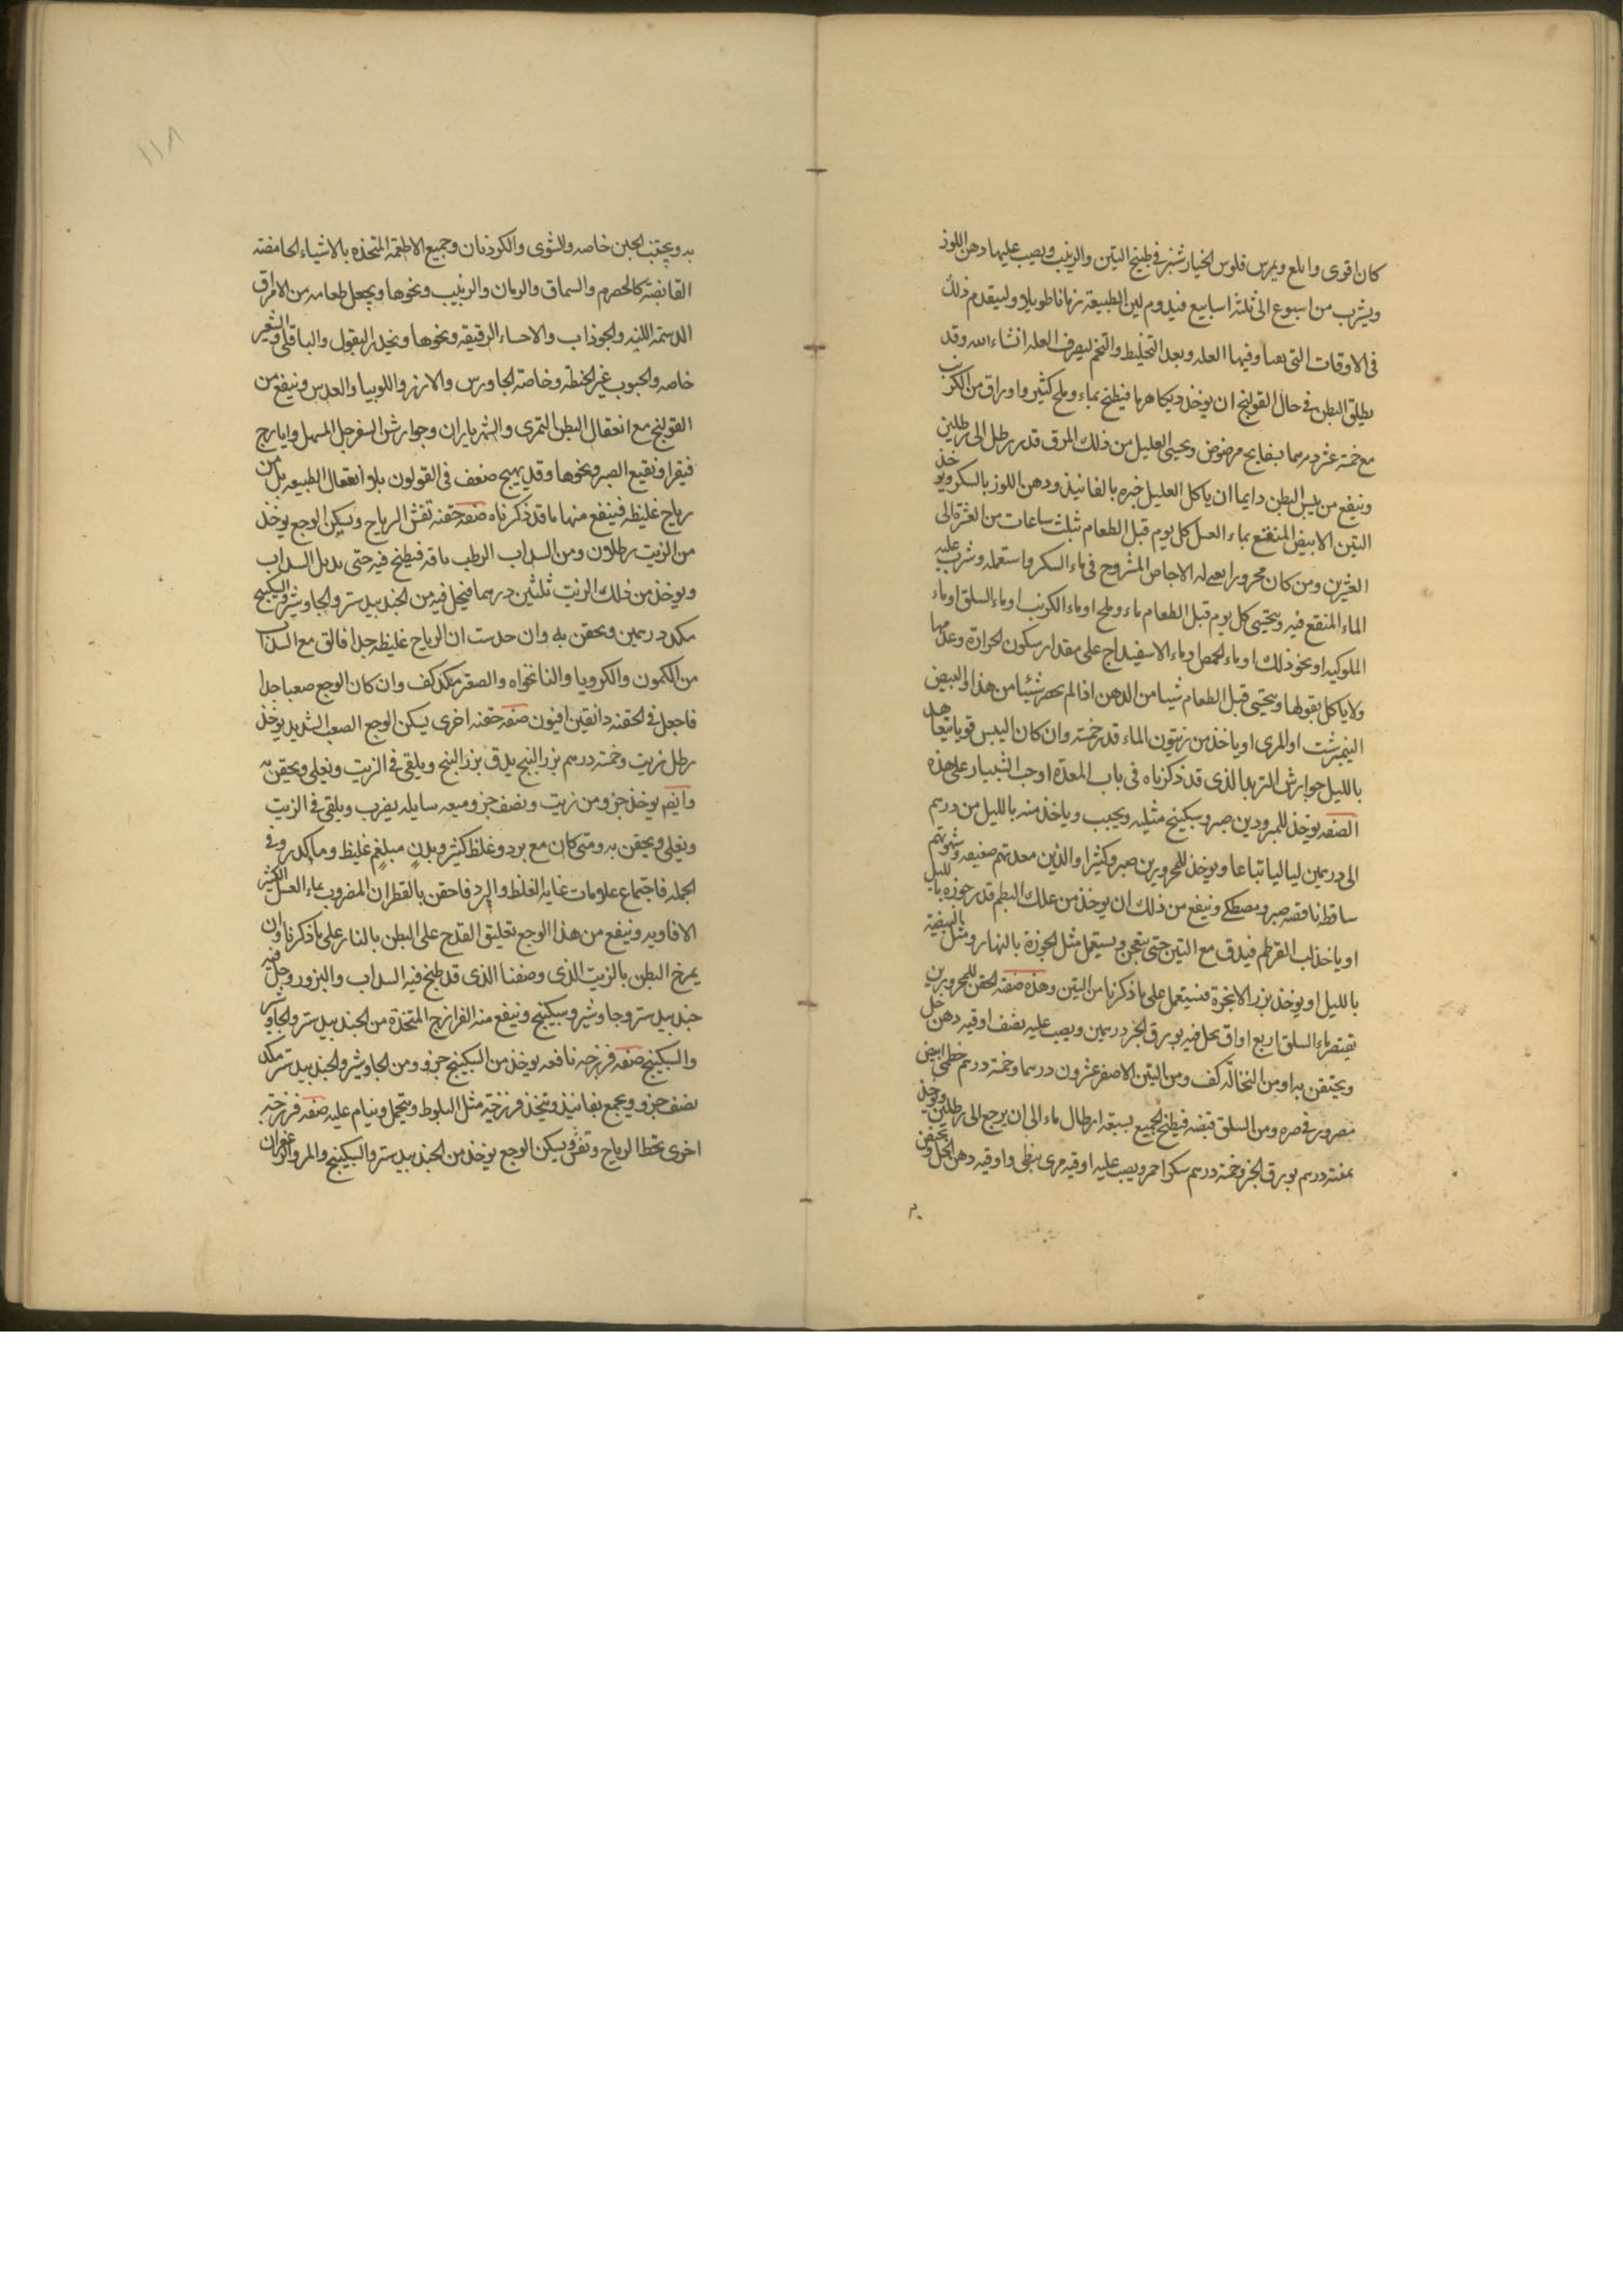 كان اقوى وابلع ويمرس فلوس الخيارشنبر فى طبيخ التين والزبيب ويصب عليها دهن اللوز
ويشرب من اسبوع الى ثلثة اسابيع فيدوم لين الطبيعة زمانا طويلا وليقدم ذلك
فى الاوقات التى فيها العله وبعد التخليط والتخم ليصرف العله انشاء الله وقد
يطلق البطن فى حال القولنج ان يوخذ ديكا هرما فيطبخ بماء وملح كثير واوراق من الكرنب
مع خمسة عشر درهما بسفايج مرضوض ويحسى العليل من ذلك المرق قدر رطل الى رطلين
وينفع من يبس البطن دايما ان ياكل العليل خبزه بالفانيذ ودهن اللوز بالسكر ويوخذ
التين الابيض المنقع بماء العسل كل يوم قبل الطعام بثلث ساعات من العشرة الى
العشرين ومن كان محرورا له الاجاص المشروح فى ماء السكر واستعمله وشرب عليه
الماء المنقع فيه ويحتسى كل يوم قبل الطعام ماء وملح اوماء الكرنب اوماء السلق اوماء
الملوكيه او نحو ذلك اوماء الحمص اوماء الاسفيداج على مقدار سكون الحرارة وعدمها
ولا ياكل بقولها ويحتسى قبل الطعام شيا من الدهن اذا لم شيئا من هذا والبيض
النيمبرشت او المرى او ياخذ من زيتون الماء قدر خمسة وان كان اليبس قويا
بالليل جوارش التربد الذى قد ذكرناه فى باب المعدة او حب الشبيار على هذه
الصفه يوخذ للمبرودين صبر وسكبينج مثليه ويحبب وياخذ منه بالليل من درهم
الى درهمين ليا ليا تباعا ويوخذ للمحرورين صبر وكثيرا والذين معدتهم ضعيفه وشهوتهم
ساقطه ناقصه صبر ومصطكى وينفع من ذلك ان يوخذ من علك البطم قدر جوزه بالليل
او ياخذ لب القرطم فيدق مع التين حتى يتعجن ويستعمل مثل الجوزة بالنهار ومثل البيضة
بالليل او يوخذ بزر الانجرة فيستعمل على ما ذكرنا من التين وهذه صفه الحقن للمحرورين
يعتصر ماء السلق اربع اواق يحل فيه بورق الخبز درهمين ويصب عليه نصف اوقيه دهن خل
ويحتقن به او من النخاله كف ومن التين الاصفر عشرون درهما وخمسة درهم خطمى ابيض
مصرور فى صره ومن السلق قبضه فيطبخ الجميع بسبعة ارطال ماء الى ان يرجع الى رطلين ويوخذ
درهم بورق الخبز وخمسة درهم سكر احمر ويصب عليه اوقيه مرى نبطى واوقيه دهن الخل ويحقن
١١٨
به ويجتنب الجبن خاصه والشوى والكردنان وجميع الاطعمة المتخذه بالاشياء الحامضه
القابضة كالحصرم والسماق والرمان والزبيب ونحوها ويجعل طعامه من الامراق
الدسمة اللينه والجوذاب والاحساء الرقيقة ونحوها ويحذر البقول والباقلى والشعير
خاصه والحبوب غير الحنطه وخاصة الجاورس والارز واللوبيا والعدس وينفع من
القولنج مع انعقال البطن التمرى والشهرياران وجوارش السفرجل المسهل وايارج
فيقرا ونقيع الصبر ونحوها وقد يهيج ضعف فى القولون بلا انعقال الطبيعه بل من
رياح غليظه فينفع منها ما قد ذكرناه صفه حقنه تفش الرياح ويسكن الوجع يوخذ
من الزيت رطلان ومن السداب الرطب باقه فيطبخ فيه حتى يذبل السداب
ويوخذ من ذلك الزيت ثلثين درهما فيحل فيه من الجندبيدستر والجاوشير والسكبينج
مكد درهمين ويحقن به وان حدست ان الرياح غليظه جدا فالق مع السذاب
من الكمون والكرويا والنانخواه والصعتر مكد كف وان كان الوجع صعبا جدا
فاجعل فى الحقنه دانقين افيون صفه حقنه اخرى يسكن الوجع الصعب الشديد يوخذ
رطل زيت وخمسة درهم بزر البنج يدق بزر البنج ويلقى فى الزيت ويغلى ويحقن به
وايضا يوخذ جزو من زيت ونصف جزو ميعه سايله يضرب ويلقى فى الزيت
ويغلى ويحقن به ومتى كان مع برد وغلظ كثير وبدن مبلغم غليظ وفى
الجمله فاجتماع علامات غاية الغلظ والبرد فاحقن بالقطران المضروب بماء العسل الكثير
الافاويه وينفع من هذا الوجع تعليق القدح على البطن بالنار على ما ذكرنا وان
يمرخ البطن بالزيت الذى وصفنا الذى قد طبخ فيه السداب والبزور وحل فيه
جندبيدستر وجاوشير وسكبينج وينفع منه الفرازج المتخذة من الجندبيدستر والجاوشير
والسكبينج صفه فرزجه نافعه يوخذ من السكبينج جزو ومن الجاوشير والجندبيدستر مكد
نصف جزو ويجمع بفانيذ ويتخذ فرزجة مثل البلوط ويتحمل وينام عليه صفه فرزجة
اخرى تحط الرياح وتفش ويسكن الوجع يوخذ من الجندبيدستر والسكبينج والمر والزعفران